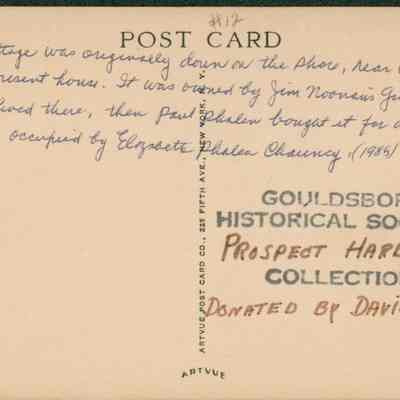 #12
POST CARD
ttage was originally down on the shore, near
present house. It was owned by Jim Noonan's
lived there, then Paul Phalen bought it for a
occupied by Phalen Chauncy, (1989)
ARTVUE POST CARD CO., 225 FIFTH AVE., NEW YORK, N. Y.
GOULDSBOR
HISTORICAL SOC
PROSPECT HARB
COLLECTION
DONATED BY DAVI
ARTVUE